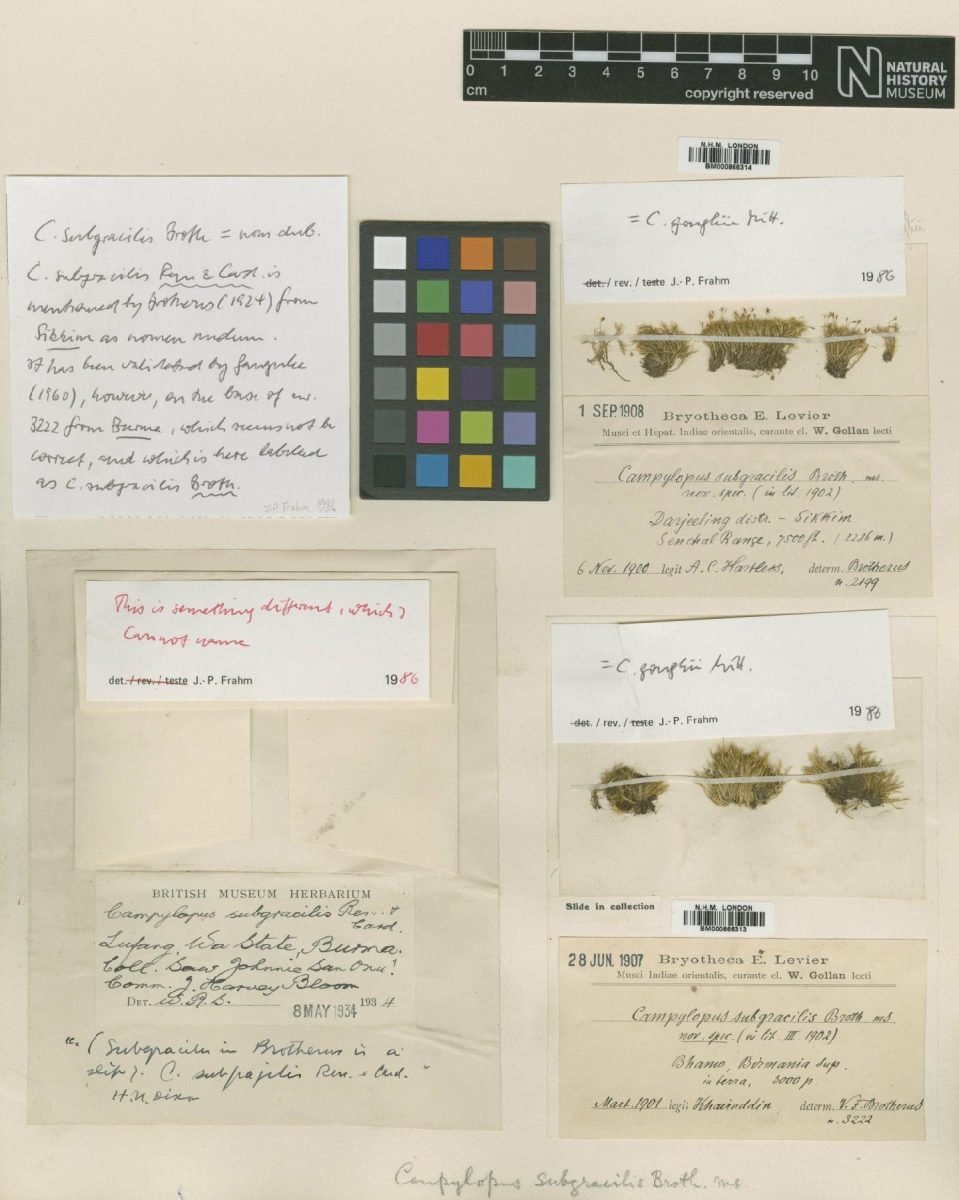 0 1 2 3 4 5 6 7 8 9 10
cm
copyright reserved
NATURAL
HISTORY
MUSEUM
N.H.M. LONDON
BM000866314
C. subgracilis Broth = nom dub.
C. subgracilis Ren & Card. is
mentioned by Brotherus (1924) from
Sikkim as nomen nudum.
It has been validated by Gangulee
(1960), however, on the base of no.
3222 from Burma, which seems not be
correct, and which is here labeled
as C. subgracilis Broth.
J-P. Frahm 1986
= C. goughii Mitt.
det. / rev. / teste J.-P. Frahm 1986
1 SEP 1908 Bryotheca E. Levier
Musci et Hepat. Indiae orientalis, curante cl. W. Gollan lecti
Campylopus subgracilis Broth ms.
nov. spec. (in lit. 1902)
Darjeeling distr. – Sikkim
Senchal Range, 7500 ft. (2286 m.)
6 Nov. 1900 legit A. C. Hartless, determ. Brotherus
n. 2199
This is something different, which I
cannot name
det. / rev. / teste J.-P. Frahm 1986
BRITISH MUSEUM HERBARIUM
Campylopus subgracilis Ren. &
Card.
Lufang, Wa State, Burma.
Coll. Saw Johnnie San Onu!
Comm. J. Harvey Bloom
DET. W.R.S. 1934
8 MAY 1934
(Subgracilis in Brotherus is a
slip). C. subfragilis Ren. & Card."
H.N. Dixon
= C. goughii Mitt.
det. / rev. / teste J.-P. Frahm 1986
Slide in collection
N.H.M. LONDON
BM000866313
28 JUN. 1907 Bryotheca E. Levier
Musci Indiae orientalis, curante cl. W. Gollan lecti
Campylopus subgracilis Broth ms
nov. spec. (in lit. III 1902)
Bhamo, Birmania sup.
in terra, 3000 p.
Mart. 1901 legit Khairuddin, determ. V. F. Brotherus
n. 3222
Campylopus subgracilis Broth. ms.